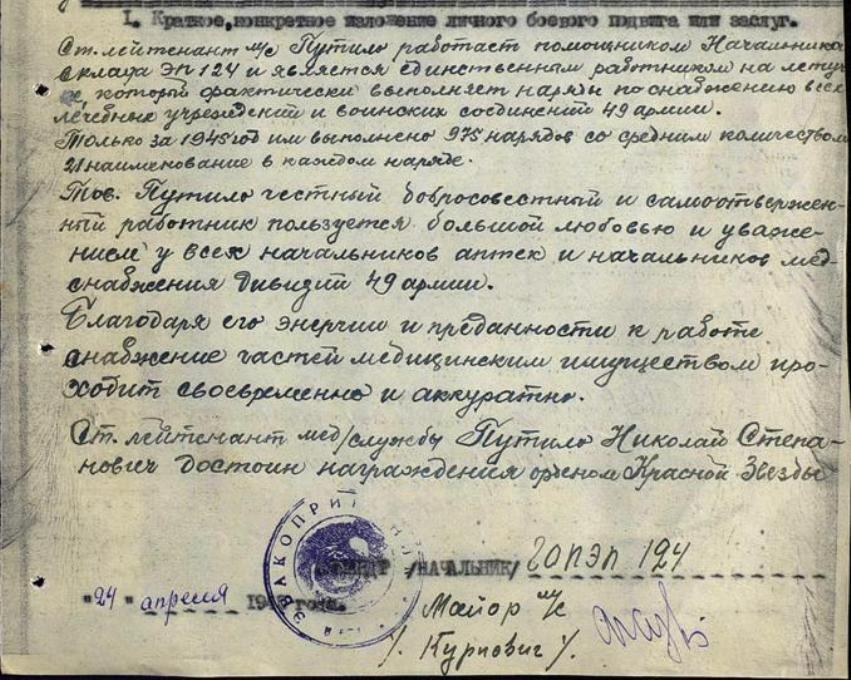 1. Краткое, конкретное изложение личного боевого подвига или заслуг.
Ст. лейтенант м/с Путило работает помощником Начальника
склада ЭП 124 и является единственным работником на летуч-
ке, который фактически выполняет наряды по снабжению всех
лечебных учреждений и воинских соединений 49 армии.
Только за 1945 год им выполнено 975 нарядов со средним количеством
21 наименование в каждом наряде.
Тов. Путило честный добросовестный и самоотвержен-
ный работник пользуется большой любовью и уваже-
нием у всех начальников аптек и начальников мед-
снабжения дивизий 49 армии.
Благодаря его энергии и преданности к работе
снабжение частей медицинским имуществом про-
ходит своевременно и аккуратно.
Ст. лейтенант мед/службы Путило Николай Степа-
нович достоин награждения орденом Красной Звезды
ЭВАКОПРИ
/НАЧАЛЬНИК/ 20ПЭП 124
"24" апреля 194 года.
Майор м/с
/. Курнович /.